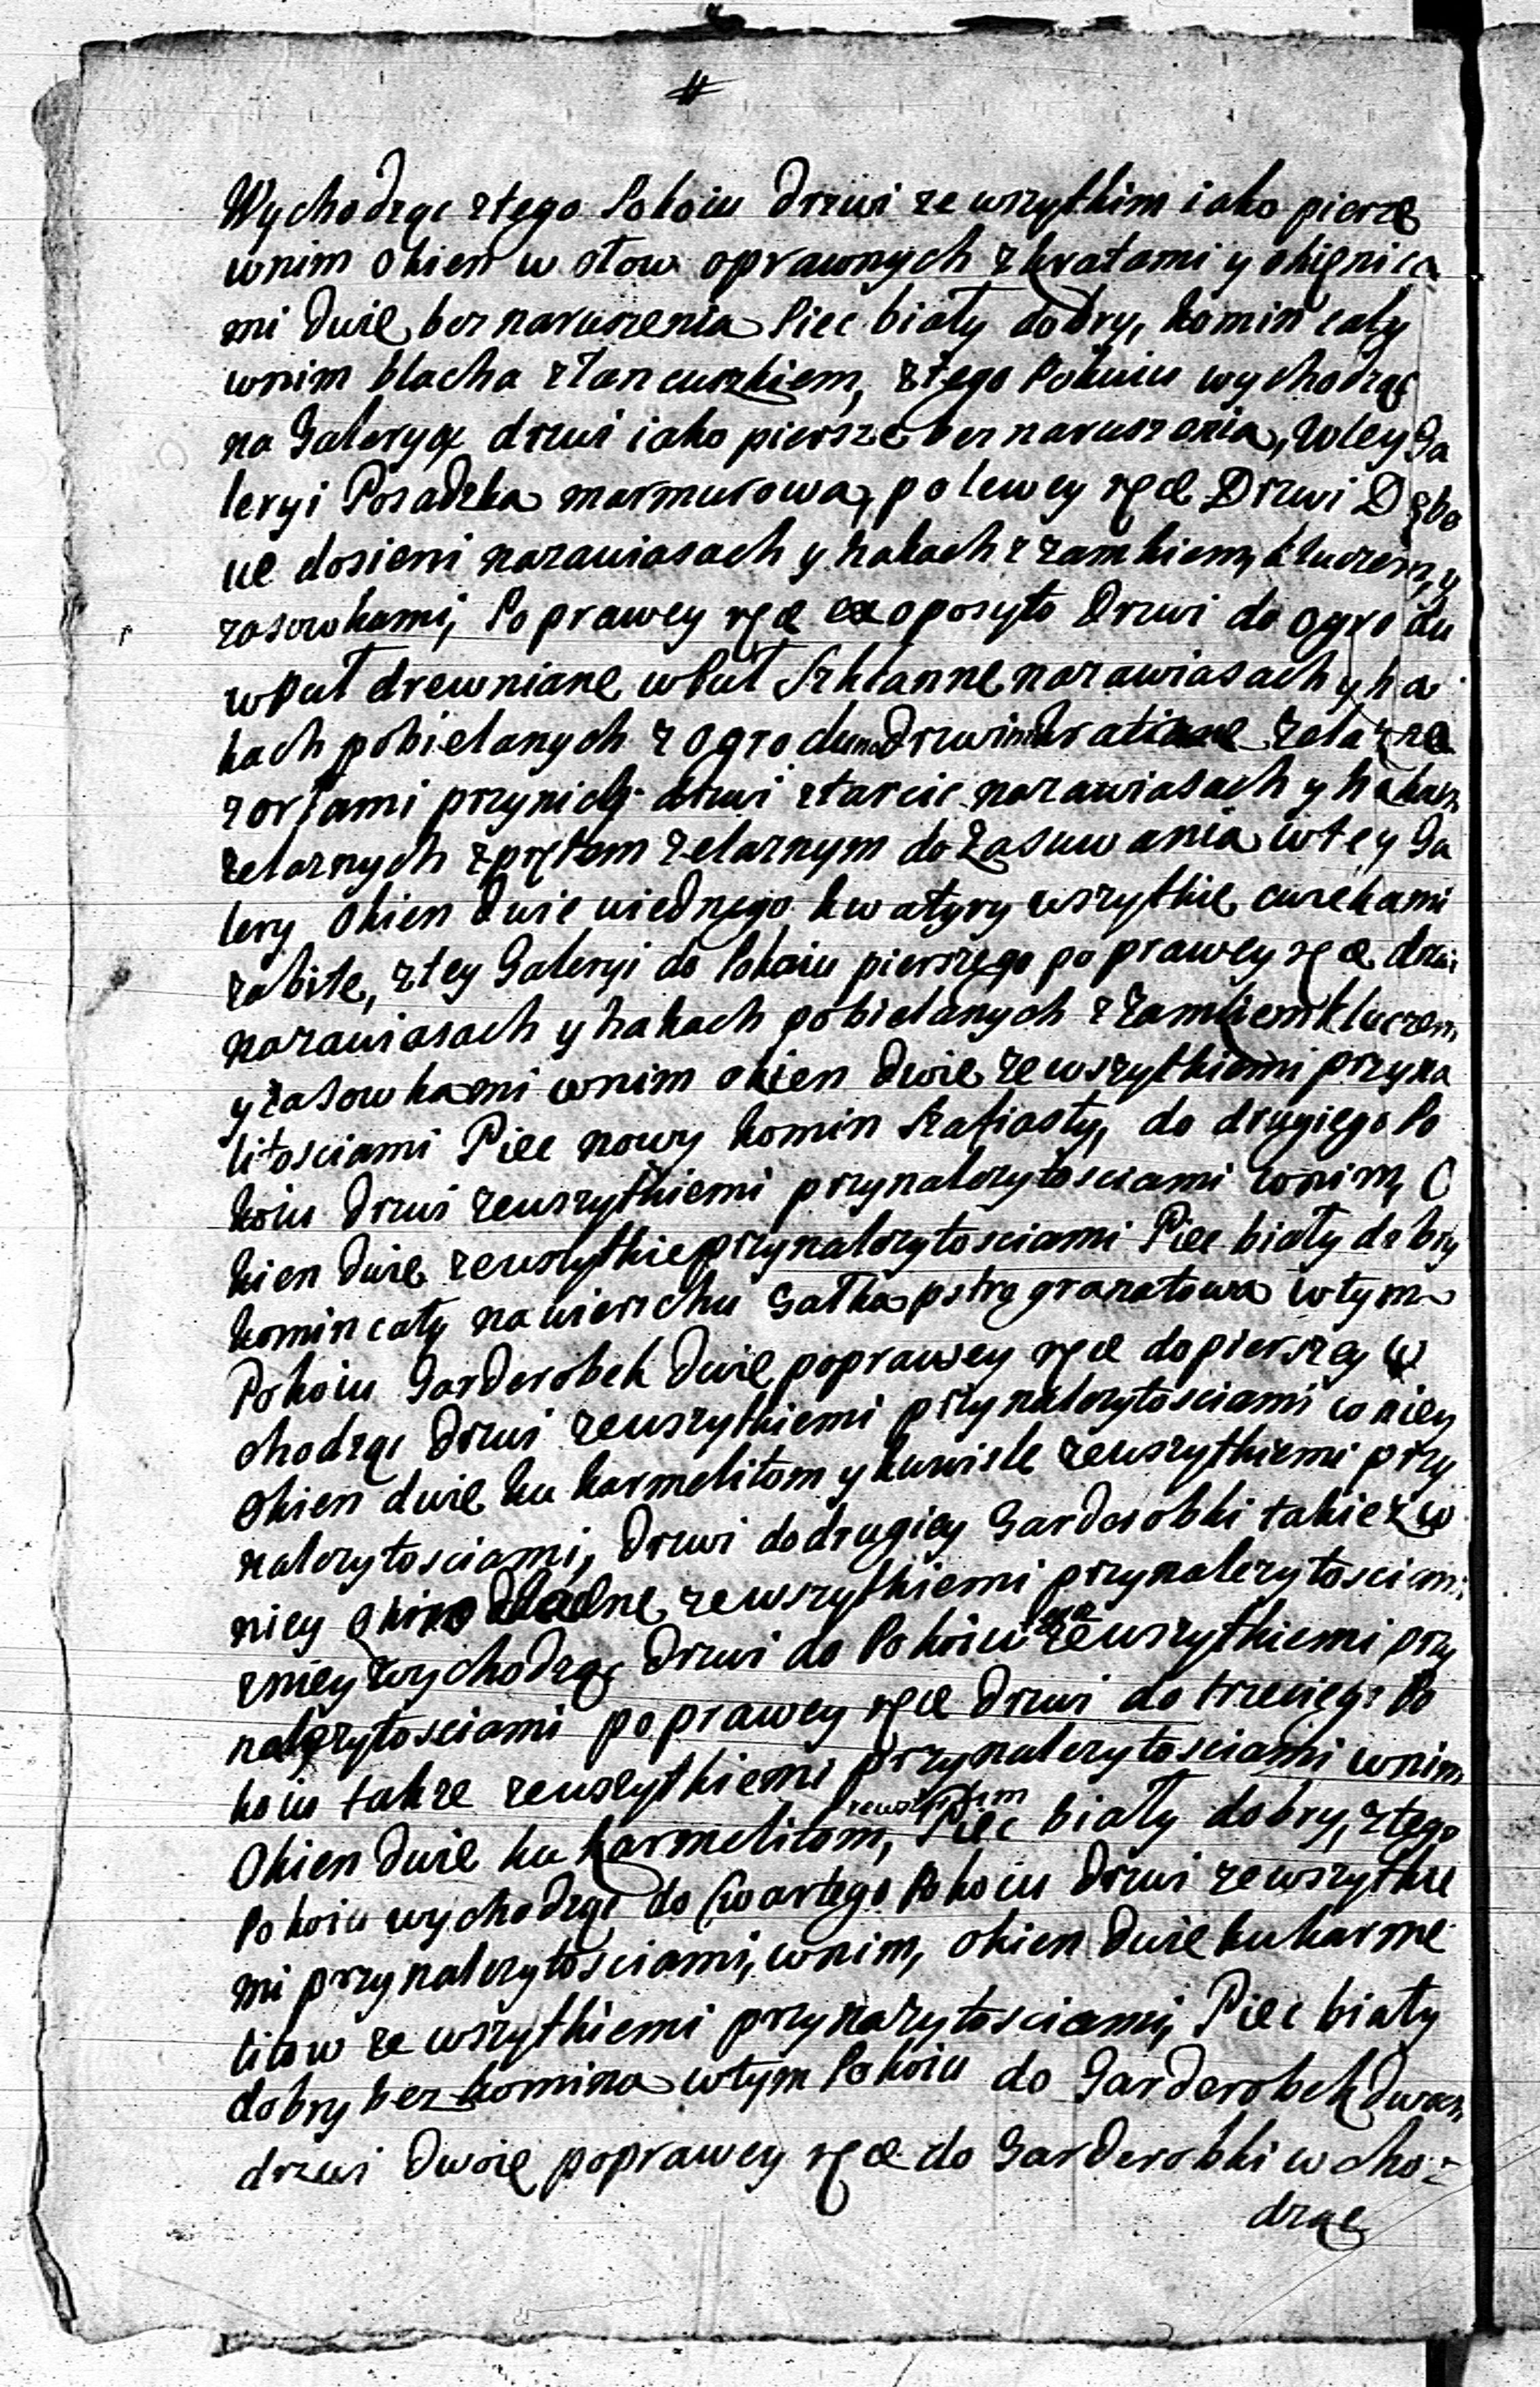 #
Wychodząc ztego Pokoiu Drzwi ze wszytkim iako pierze
wnim okien w ołow oprawnych zkratami y okięnica
mi dwie, bez naruszenia Piec biały dobry, komin cały
wnim blacha złancuszkiem, ztego Pokoiu wychodząc
na Galeryą drzwi iako piersze bez naruszenia, wtey Ga
leryi Posadzka marmurowa, po lewey ręce Drzwi Dębo
we dosieni nazawiasach y hakach z zamkiem, kluczem, y
zasowkami, Po prawey ręce exoposyto Drzwi do ogrodu
wpuł drewniane wpuł Szklanne nazawiasach y ha
kach pobielanych z ogrodu Drzwi żelazne
zorłami przynich drzwi ztarcic nazawiasach y hakach
żelaznych zprętem żelaznym do Zasuwania wtey Ga
lery okien dwie uiednego kwatyry wszytkie cwiekami
zabite, ztey Galeryi do Pokoiu pierszego po prawey ręce drzwi
nazawiasach y hakach pobielanych z zamkiem kluczem
y zasowkami wnim okien dwie ze wszytkiemi przyna
litosciami Piec nowy komin Szafiasty, do drugiego Po
koiu drzwi zewszytkiemi przynalezytosciami wnim, O
kien dwie zewszytkie przynalezytosciami Piec biały dobry
komin cały nawierzchu Gałka pstrą granatowa wtym
Pokoiu Garderobek dwie poprawey ręce dopierszey w
chodząc Drzwi zewszytkiemi przynalezytosciami wniey
Okien dwie ku karmelitom y kuwisle zewszytkiemi przy
nalezytosciami, Drzwi dodrugiey Garderobki takiez w
niey okno zewszytkiemi przynalezytosciami
zniey wychodząc Drzwi do Pokoiu zewszytkiemi przy
nalezytosciami poprawey ręce drzwi do trzeciego Po
koiu takze zewszytkiemi przynalezytosciami wnim
Okien dwie ku karmelitom, zewszytkim Piec biały dobry, ztego
Pokoiu wychodząc do Czwartego Pokoiu Drzwi zewszytkie
mi przynalezytosciami, wnim, okien dwie kukarme
litow ze wszytkiemi przynazytosciami, Piec biały
dobry bez komina wtym Pokoiu do Garderobek dwoch
drzwi Dwoie poprawey ręce do Garderobki wcho-
dząc